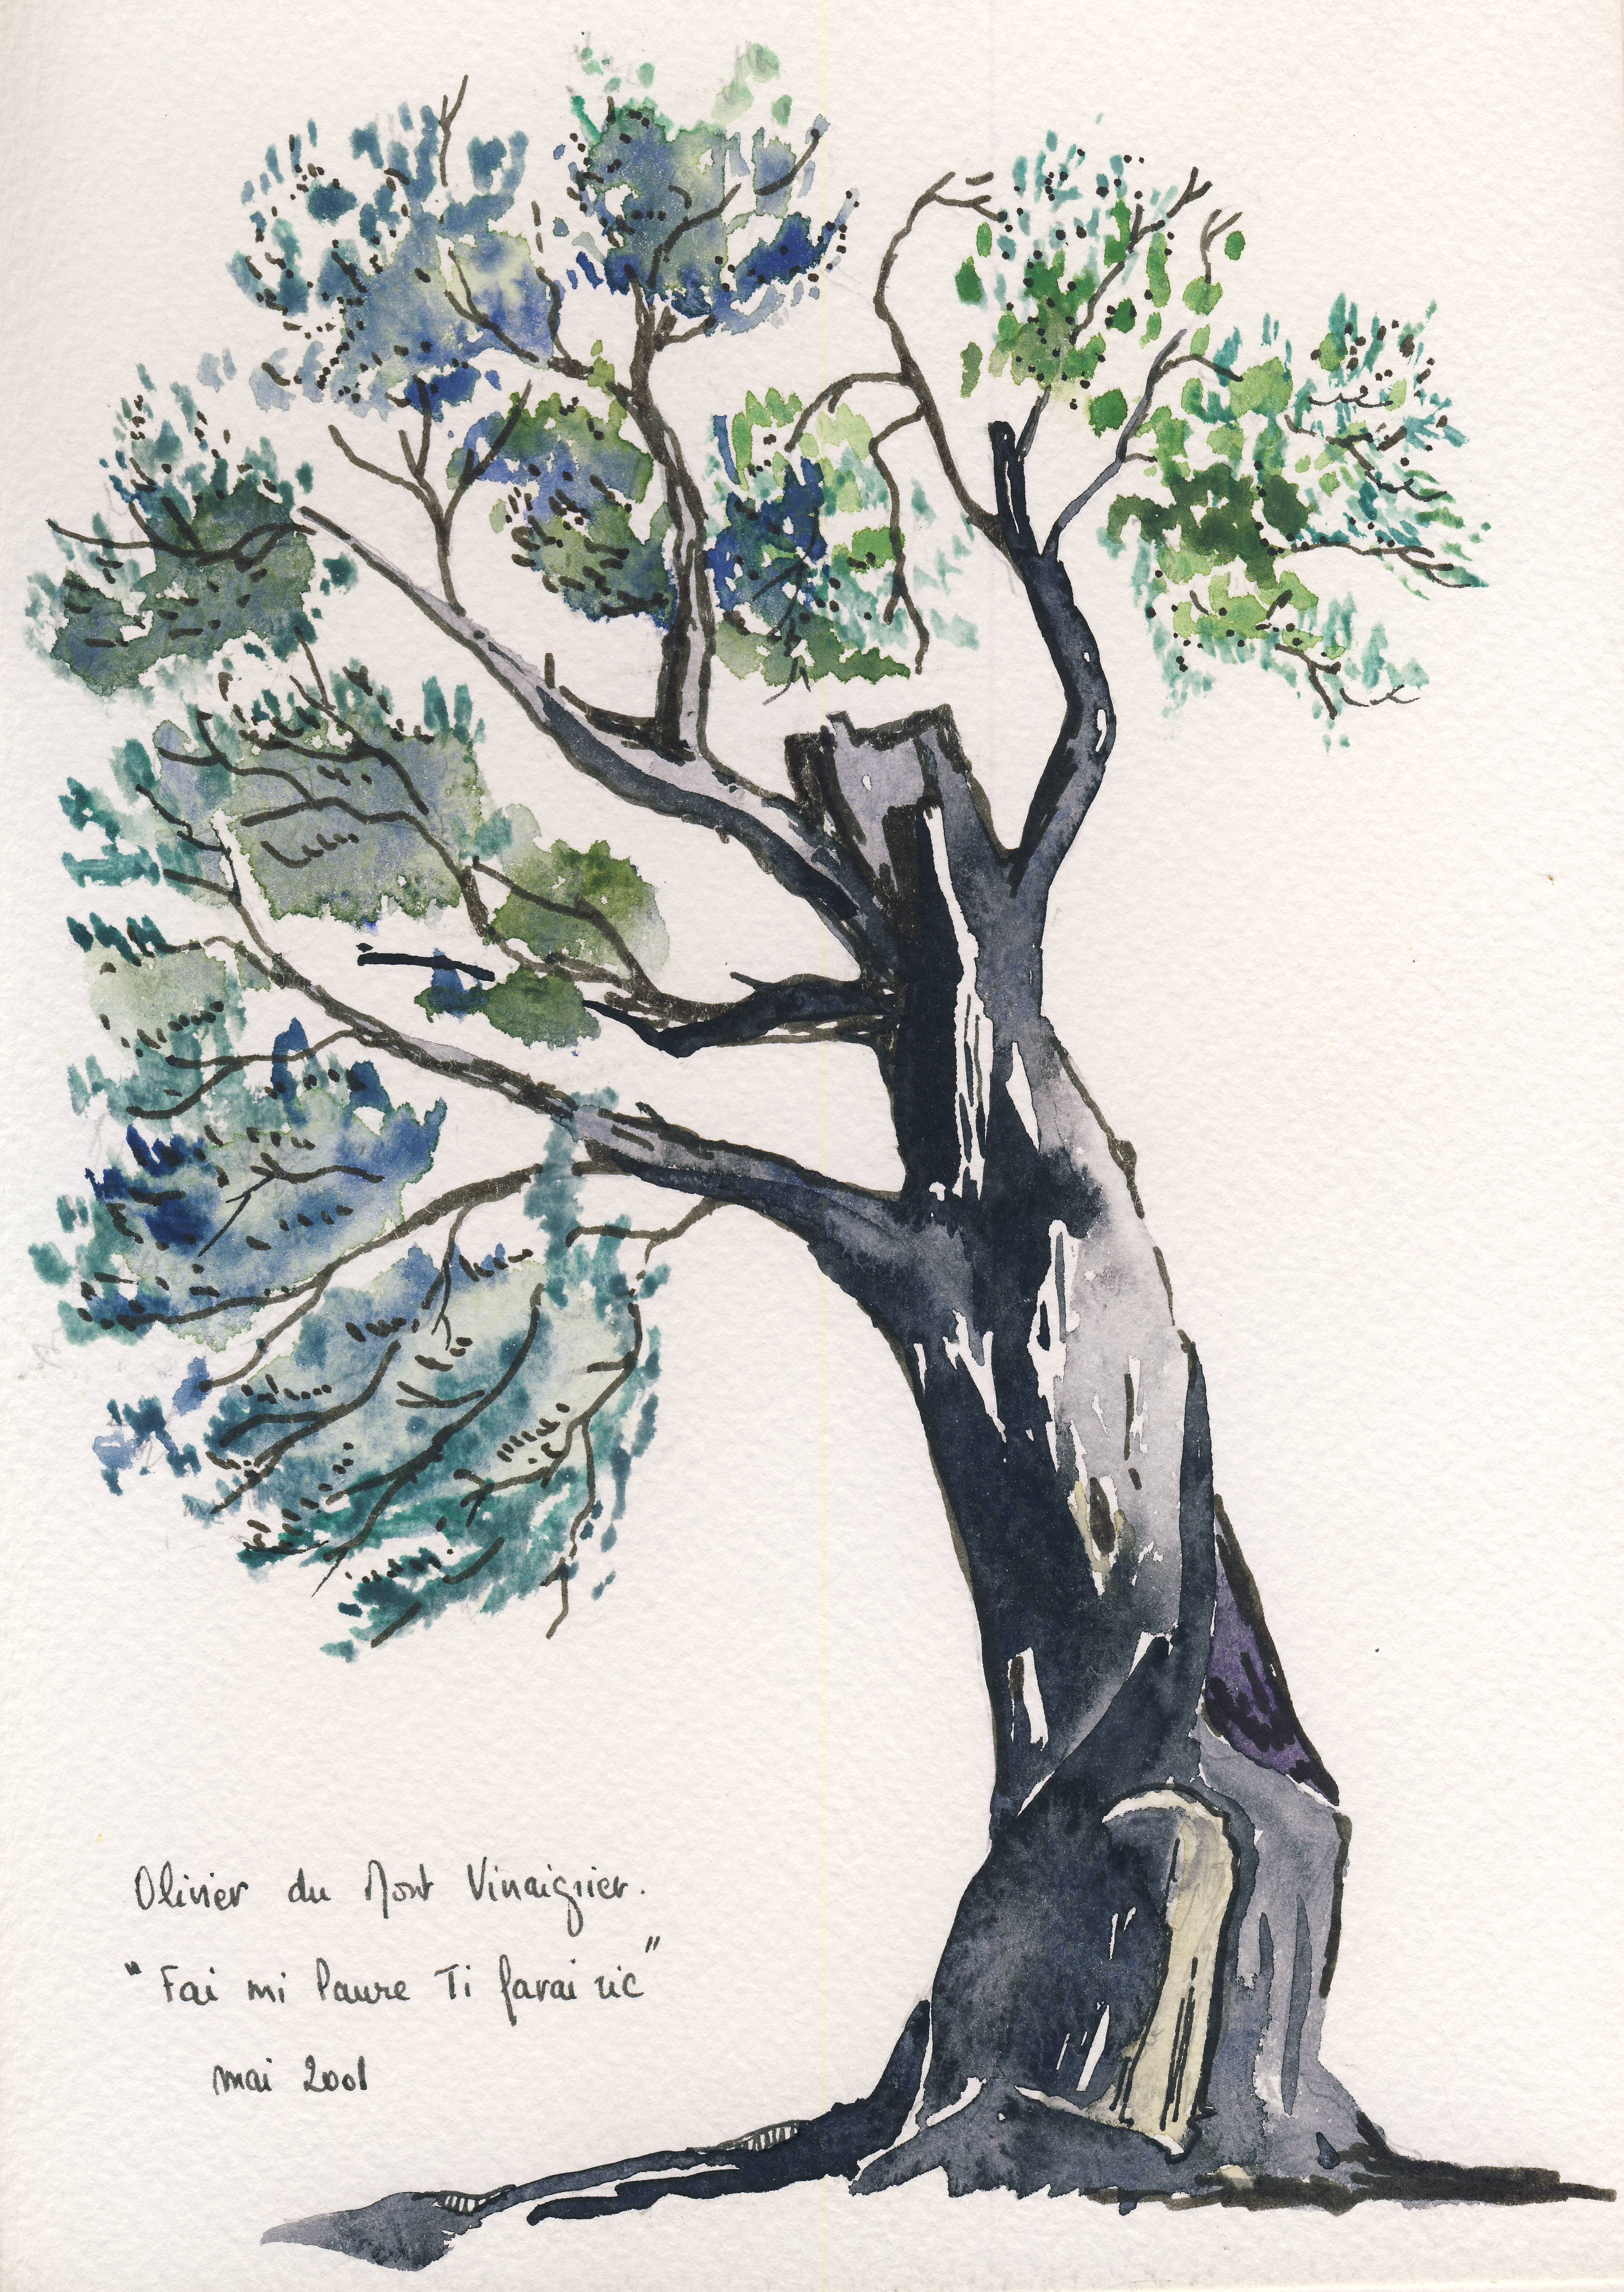 Olivier du Mont Vinaigrier.
"Fai mi paure Ti farai ric"
mai 2001